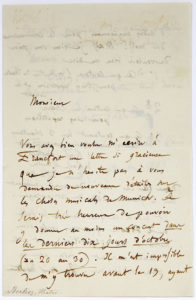 Monsieur
Vous avez bien voulu m'écrire à
Francfort une lettre si gracieuse
que je n'hésite pas à vous
demander de nouveaux détails sur
les choses musicales de Munich. Je
serais très heureux de pouvoir
y donner au moins un concert dans
les derniers dix jours d'octobre
(du 20 au 30). Il m'est impossible
de m'y trouver avant le 19, ayant